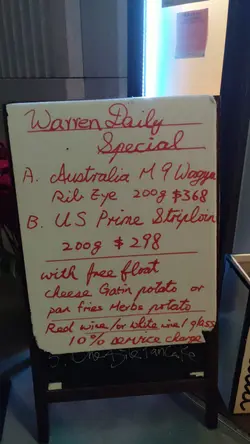 Warren Daily
Special
A. Australia M9 Wagyu
Rib Eye 200g $368
B. US Prime Striploin
200g $298
with free float
cheese Gratin potato or
pan fries Herbs potato
Red wine/or white wine 1 glass
10% service charge